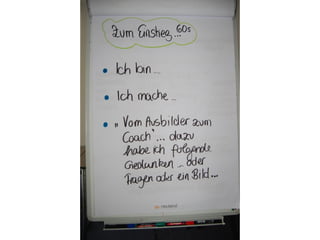 Zum Einstieg... 60s
Ich bin...
Ich mache...
"Vom Ausbilder zum
Coach"... dazu
habe ich folgende
Gedanken... oder
Fragen oder ein Bild...